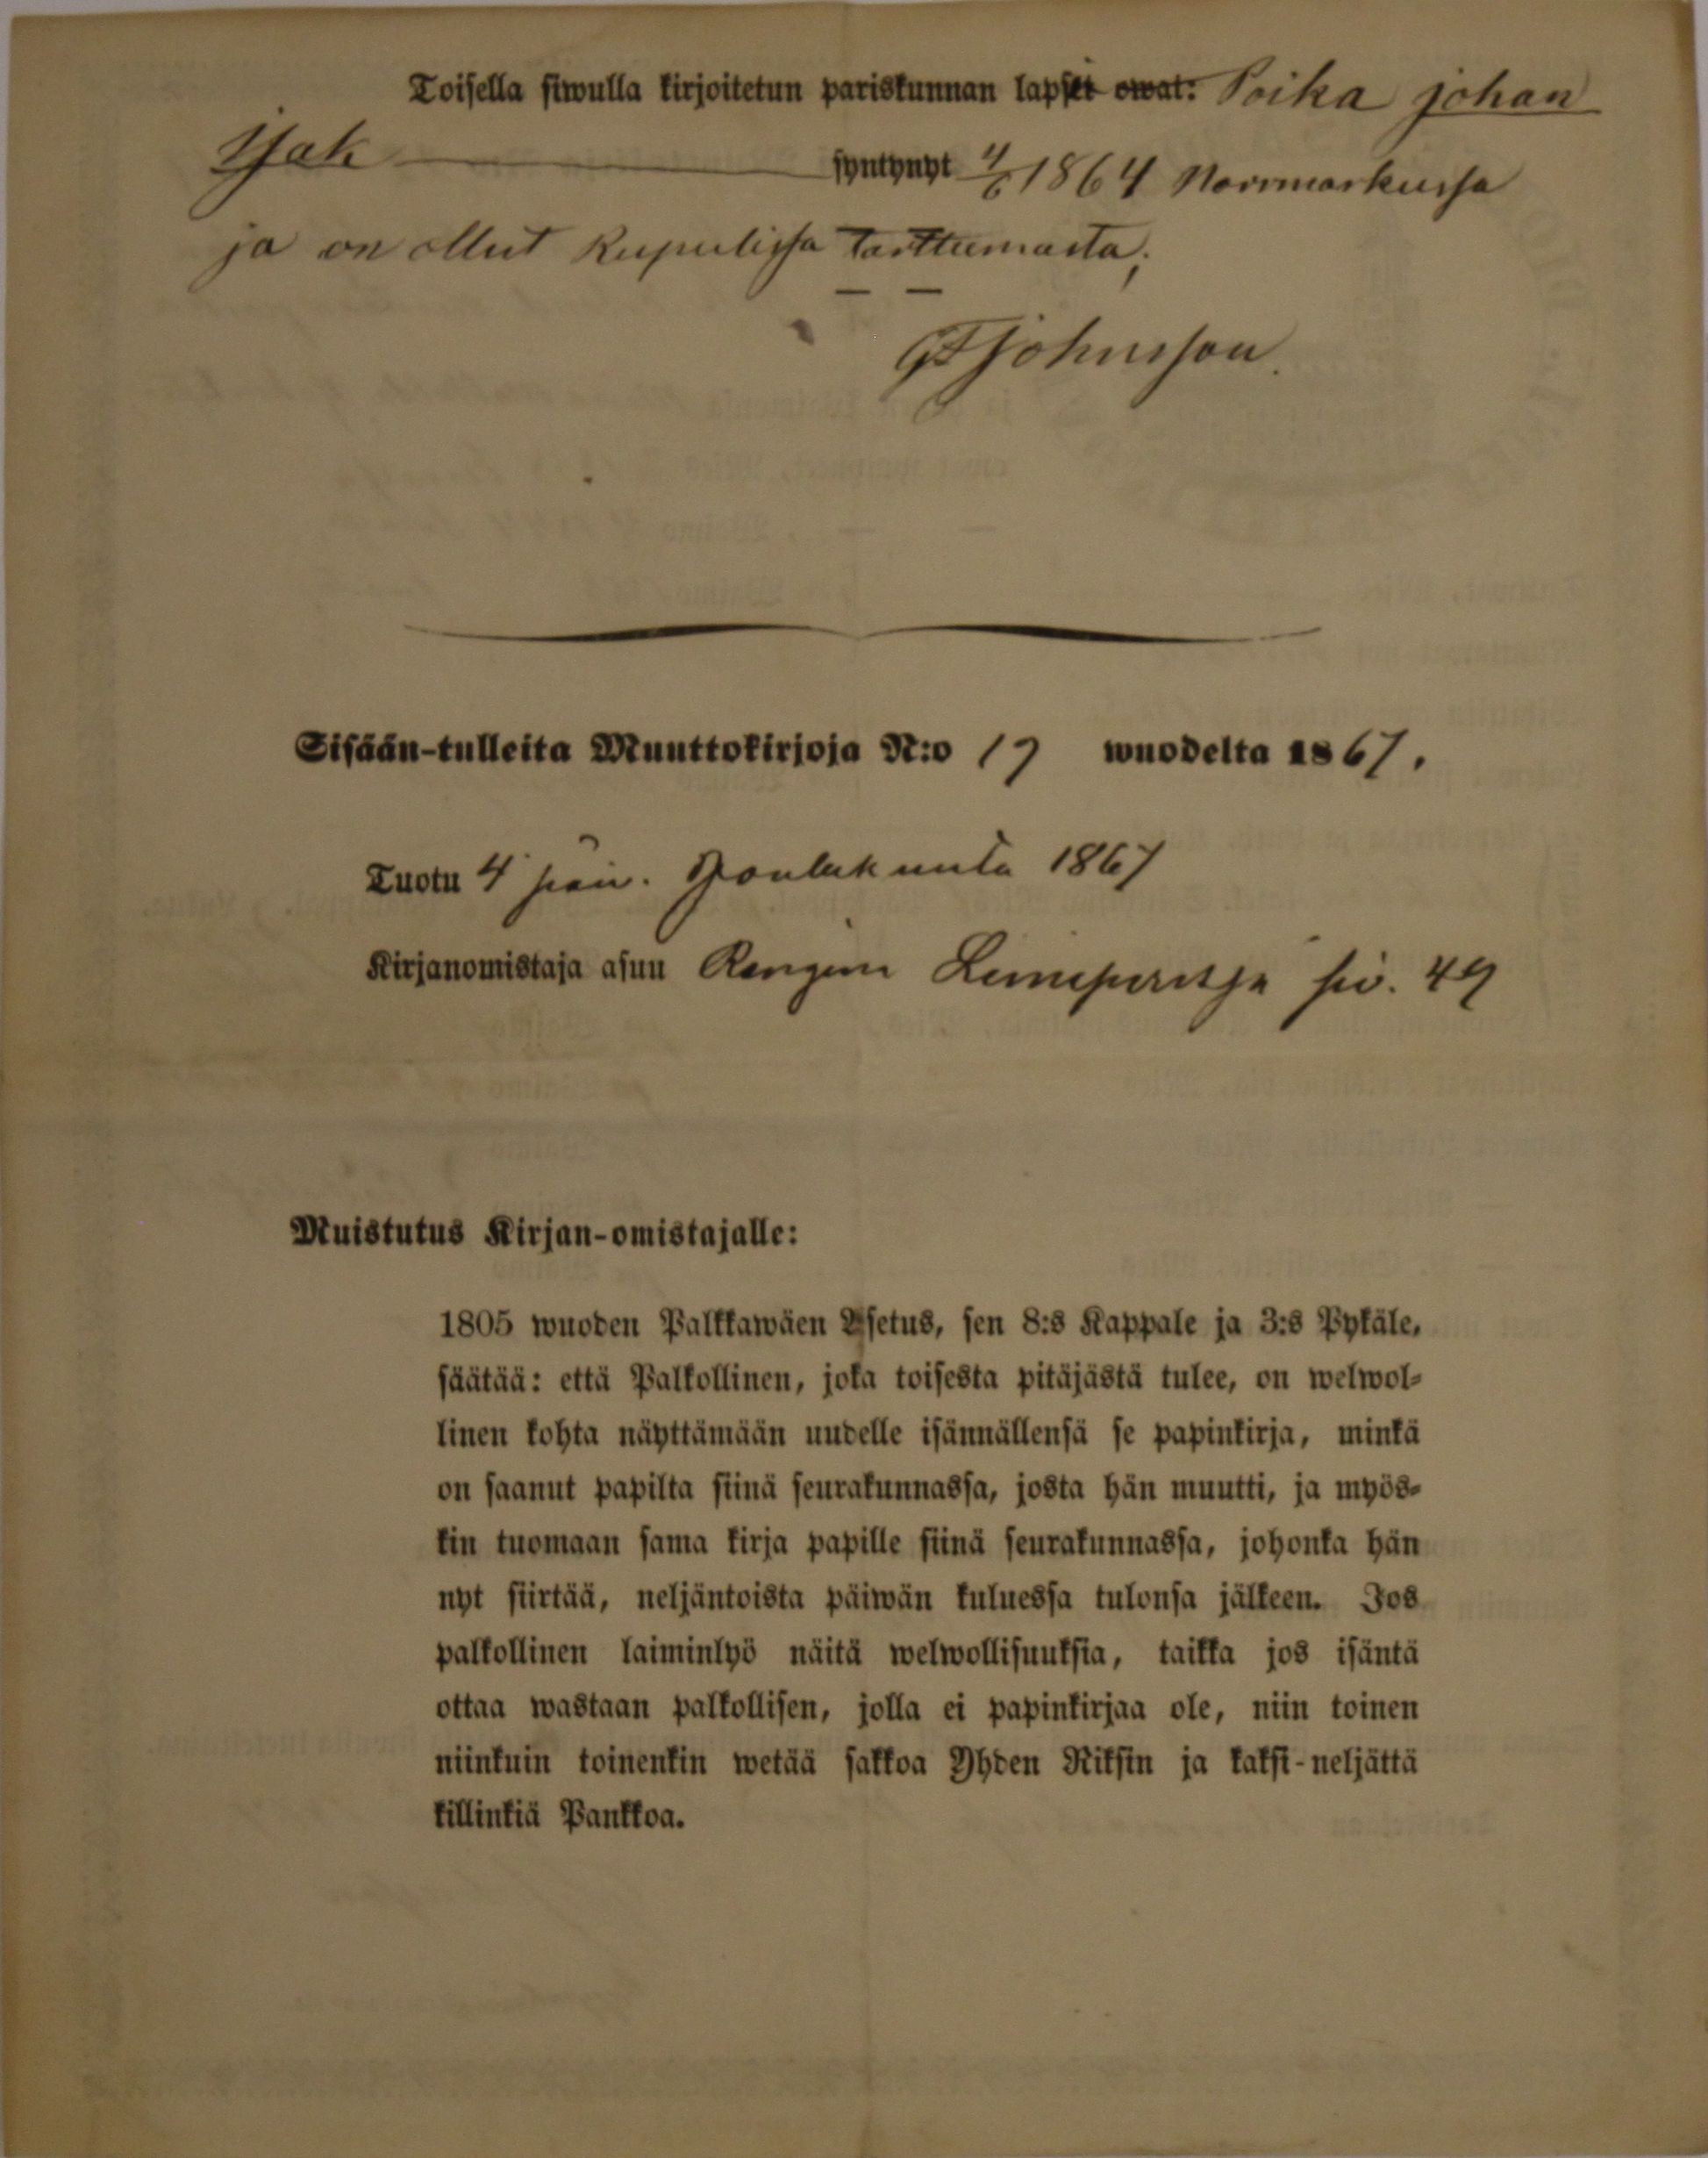 Toisella siwulla kirjoitetun pariskunnan lapset owat: Poika johan
Isak syntynyt 4/6 1864 Norrmarkussa
ja on ollut Rupulissa tarttumasta;
GFJohnsson.
Sisään-tulleita Muuttokirjoja N:o 17 wuodelta 1867.
Tuotu 4 päiv. Joulukuuta 1867
Kirjanomistaja asuu siv. 49
Muistutus Kirjan-omistajalle:
1805 wuoden Palkkawäen Asetus, sen 8:s Kappale ja 3:s Pykäle,
säätää: että Palkollinen, joka toisesta pitäjästä tulee, on welwol-
linen kohta näyttämään uudelle isännällensä se papinkirja, minkä
on saanut papilta siinä seurakunnassa, josta hän muutti, ja myös-
kin tuomaan sama kirja papille siinä seurakunnassa, johonka hän
nyt siirtää, neljäntoista päiwän kuluessa tulonsa jälkeen. Jos
palkollinen laiminlyö näitä welwollisuuksia, taikka jos isäntä
ottaa wastaan palkollisen, jolla ei papinkirjaa ole, niin toinen
niinkuin toinenkin wetää sakkoa Yhden Riksin ja kaksi-neljättä
killinkiä Pankkoa.